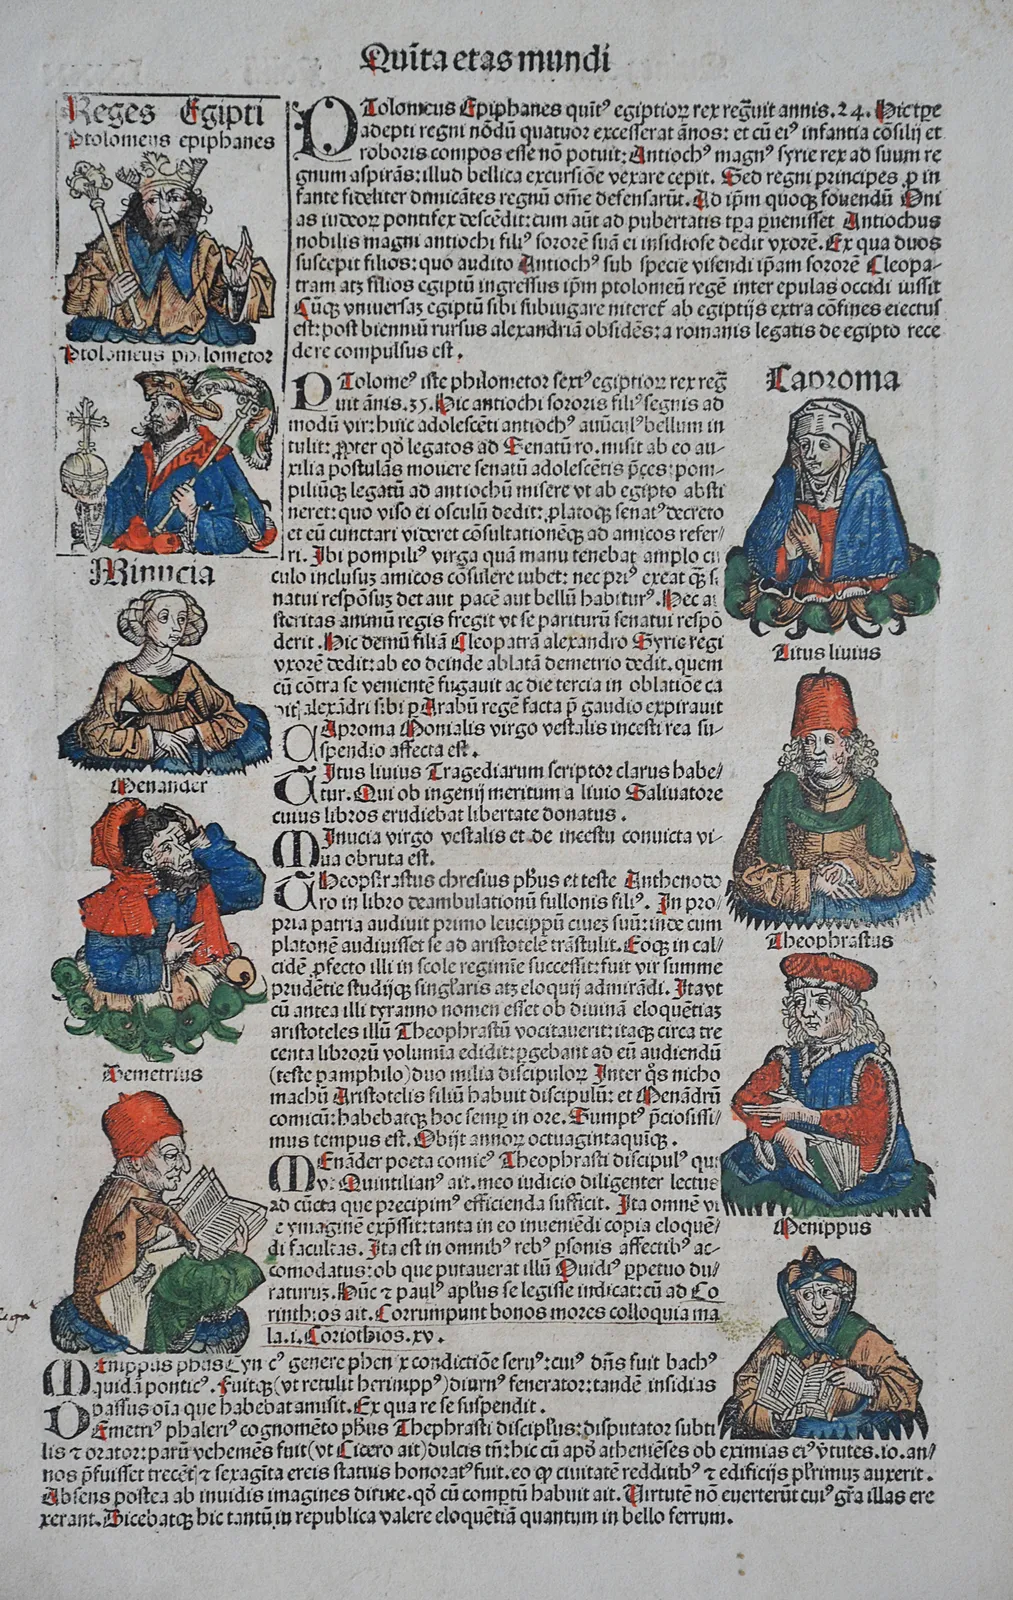 Qui̅ta etas mundi
Reges Egipti
Ptolomeus epiphanes
Ptolomeus philometor
Minucia
Menander
Demetrius
PTolomeus Epiphanes quint⁹ egiptioꝝ rex regͣuit annis.24. Hic tꝑe
adepti regni nōdū quatuor excesserat ānos: et cū ei⁹ infantia cōsilij et
roboris compos esse nō potuit: Antioch⁹ magn⁹ syrie rex ad suum re
gnum aspirās: illud bellica excursiōe vexare cepit. Sed regni principes ꝓ in
fante fideliter dimicātes regnū om̄e defensarūt. Ad ip̄m quoqꝫ fouendū Oni
as iudeoꝝ pontifex descēdit: cum aūt ad pubertatis tp̄a ꝑuenisset Antiochus
nobilis magni antiochi fili⁹ sororē suā ei insidiose dedit vxorē. Ex qua duos
suscepit filios: quo audito Antioch⁹ sub specie visendi ip̄am sororē Cleopa-
tram atqꝫ filios egiptū ingressus ip̄m ptolomeū regē inter epulas occidi iussit
Cūqꝫ vniuersaꝫ egiptū sibi subiugare niteret̄ ab egiptijs extra cōfines eiectus
est: post bienniū rursus alexandriā obsidēs: a romanis legatis de egipto rece
dere compulsus est.
PTolome⁹ iste philometor sext⁹ egiptioꝝ rex reg̅
uit ānis.35. Hic antiochi sororis fili⁹ segnis ad
modū vir: huic adolescēti antioch⁹ auūcul⁹ bellum in
tulit: ꝓpter qd̄ legatos ad Senatū ro. misit ab eo au-
xilia postulās mouere senatū adolescētis p̄ces: pom-
piliūqꝫ legatū ad antiochū misere vt ab egipto absti
neret: quo viso ei osculū dedit: platoqꝫ senat⁹ decreto
et eū cunctari videret cōsultationēqꝫ ad amicos refer-
ri. Ibi pompili⁹ virga quā manu tenebat amplo
culo inclusuꝫ amicos cōsulere iubet: nec pri⁹ exeat
natui respōsuꝫ det aut pacē aut bellū habitur⁹. Hec
steritas animū regis fregit vt se pariturū senatui respō
derit. Hic demū filiā Cleopatrā alexandro Syrie regi
vxorē dedit: ab eo deinde ablatā demetrio dedit. quem
cū cōtra se venientē fugauit ac die tercia in oblatiōe ca
alexādri sibi ꝑ Arabū regē facta p̄ gaudio expirauit
CAproma Monialis virgo vestalis incesti rea su-
spendio affecta est.
TItus liuius Tragediarum scriptor clarus habe-
tur. Qui ob ingenij meritum a liuio Saliuatore
cuius libros erudiebat libertate donatus.
MInucia virgo vestalis et de incestu conuicta vi-
ua obruta est.
THeophrastus chresius ph̄us et teste Anthenodo
ro in libro deambulationū fullonis fili⁹. In pro-
pria patria audiuit primo leucippū ciueꝫ suū: inde cum
platonē audiuisset se ad aristotelē trāstulit. Eoqꝫ in cal-
cidē ꝓfecto illi in scole regimīe successit: fuit vir summe
prudētie studijqꝫ singl̄aris atqꝫ eloquij admirādi. Ita vt
cū antea illi tyranno nomen esset ob diuinā eloquētiaꝫ
aristoteles illū Theophrastū vocitauerit: itaqꝫ circa tre
centa librorū volumīa edidit: pergebant ad eū audiendū
(teste pamphilo) duo milia discipuloꝝ Inter q̄s nicho
machū Aristotelis filiū habuit discipulū: et Menādrū
comicū: habebatqꝫ hoc semꝑ in ore. Sumpt⁹ p̄ciosissi-
mus tempus est. Obijt annoꝝ octuagintaquīqꝫ.
MEnāder poeta comic⁹ Theophrasti discipul⁹
Quintilian⁹ ait. meo iudicio diligenter lectus
ad cūcta que precipim⁹ efficienda sufficit. Ita omnē vi
e ymaginē exp̄ssit: tanta in eo inueniēdi copia eloquē-
di facultas. Ita est in omnib⁹ reb⁹ ꝑsonis affectib⁹ ac-
comodatus: ob que putauerat illū Ouidi⁹ ꝑpetuo du-
raturuꝫ. Hūc ⁊ paul⁹ apl̄us se legisse indicat: cū ad Co
rinthios ait. Corrumpunt bonos mores colloquia ma
la.i. Coriothios.xv.
MEnippus ph̄us genere phen x condictiōe seru⁹: cui⁹ dn̄s fuit bach⁹
quidā pontic⁹. Fuitqꝫ (vt retulit herimpp⁹) diurn⁹ fenerator: tandē insidias
passus oīa que habebat amisit. Ex qua re se suspendit.
DEmetri⁹ phaleri⁹ cognomēto ph̄us Thephrasti discipl̄us: disputator subti
lis ⁊ orator: parū vehemēs fuit (vt Cicero ait) dulcis tn̄: hic cū apd̄ atheniēses ob eximias ei⁹ v̄tutes.io.an-
nos p̄fuisset trecēt̄ ⁊ sexagīta ereis statuis honorat⁹ fuit. eo qꝫ ciuitatē redditib⁹ ⁊ edificijs pl̄rimuꝫ auxerit.
Absens postea ab inuidis imagines dirute. qd̄ cū comp̄tū habuit ait. Virtutē nō euerterūt cui⁹ gr̄a illas ere
xerant. Dicebatqꝫ hic tantū in republica valere eloquētiā quantum in bello ferrum.
Caproma
Titus liuius
Theophrastus
Menippus